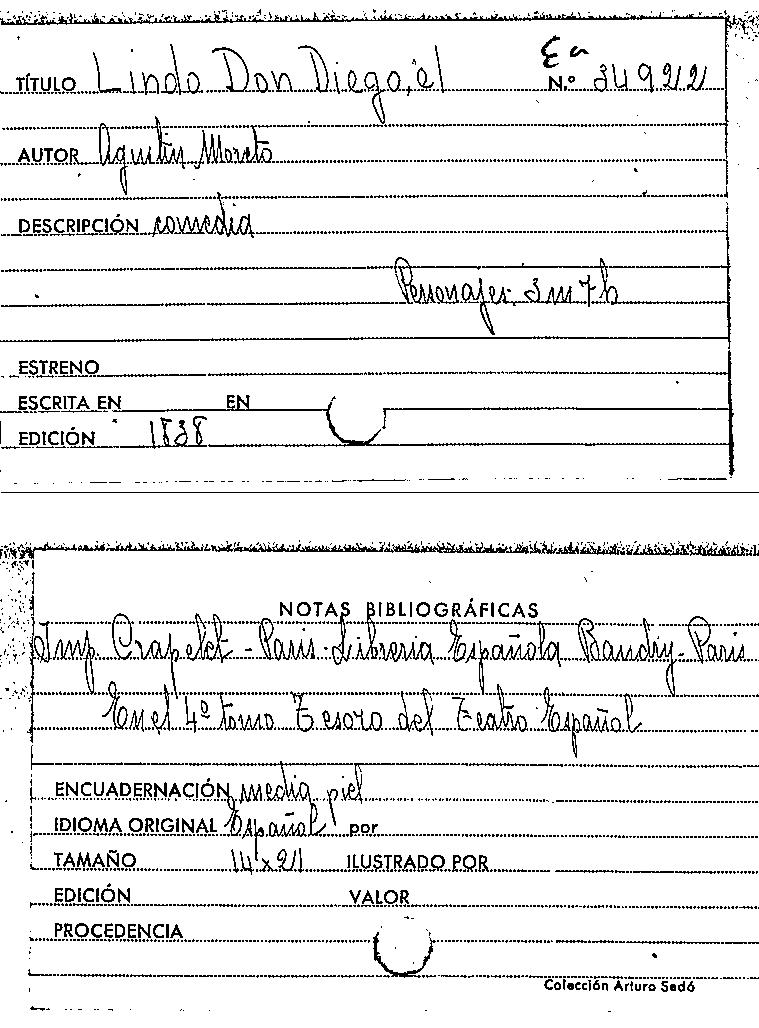 Ea
TÍTULO Lindo Don Diego, el N.º 34922
AUTOR Agustín Moreto
DESCRIPCIÓN comedia
Personajes. 3 m 7 h
ESTRENO
ESCRITA EN EN
EDICIÓN 1838
NOTAS BIBLIOGRÁFICAS
Imp. Crapelet - Paris - Libreria Española Baudry - Paris
En el 4º tomo Tesoro del Teatro Español
ENCUADERNACIÓN media piel
IDIOMA ORIGINAL Español por
TAMAÑO 14 x 21 ILUSTRADO POR
EDICIÓN VALOR
PROCEDENCIA
Colección Arturo Sedó